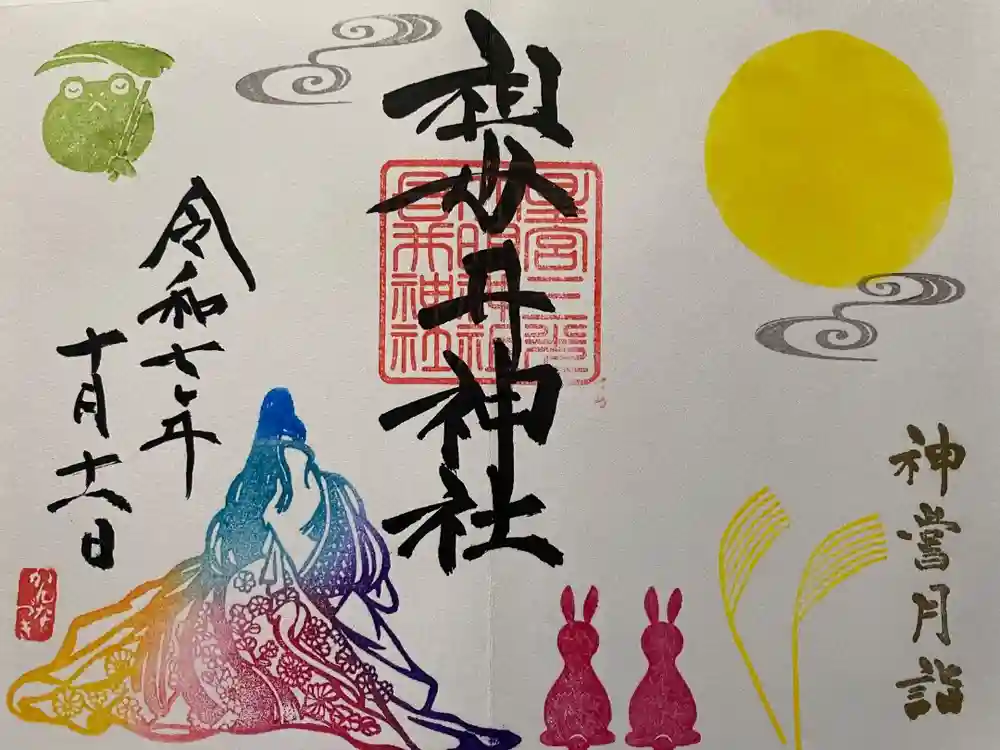 神嘗月詣
祖母井神社
令和七年
十月十六日
かんな
づき